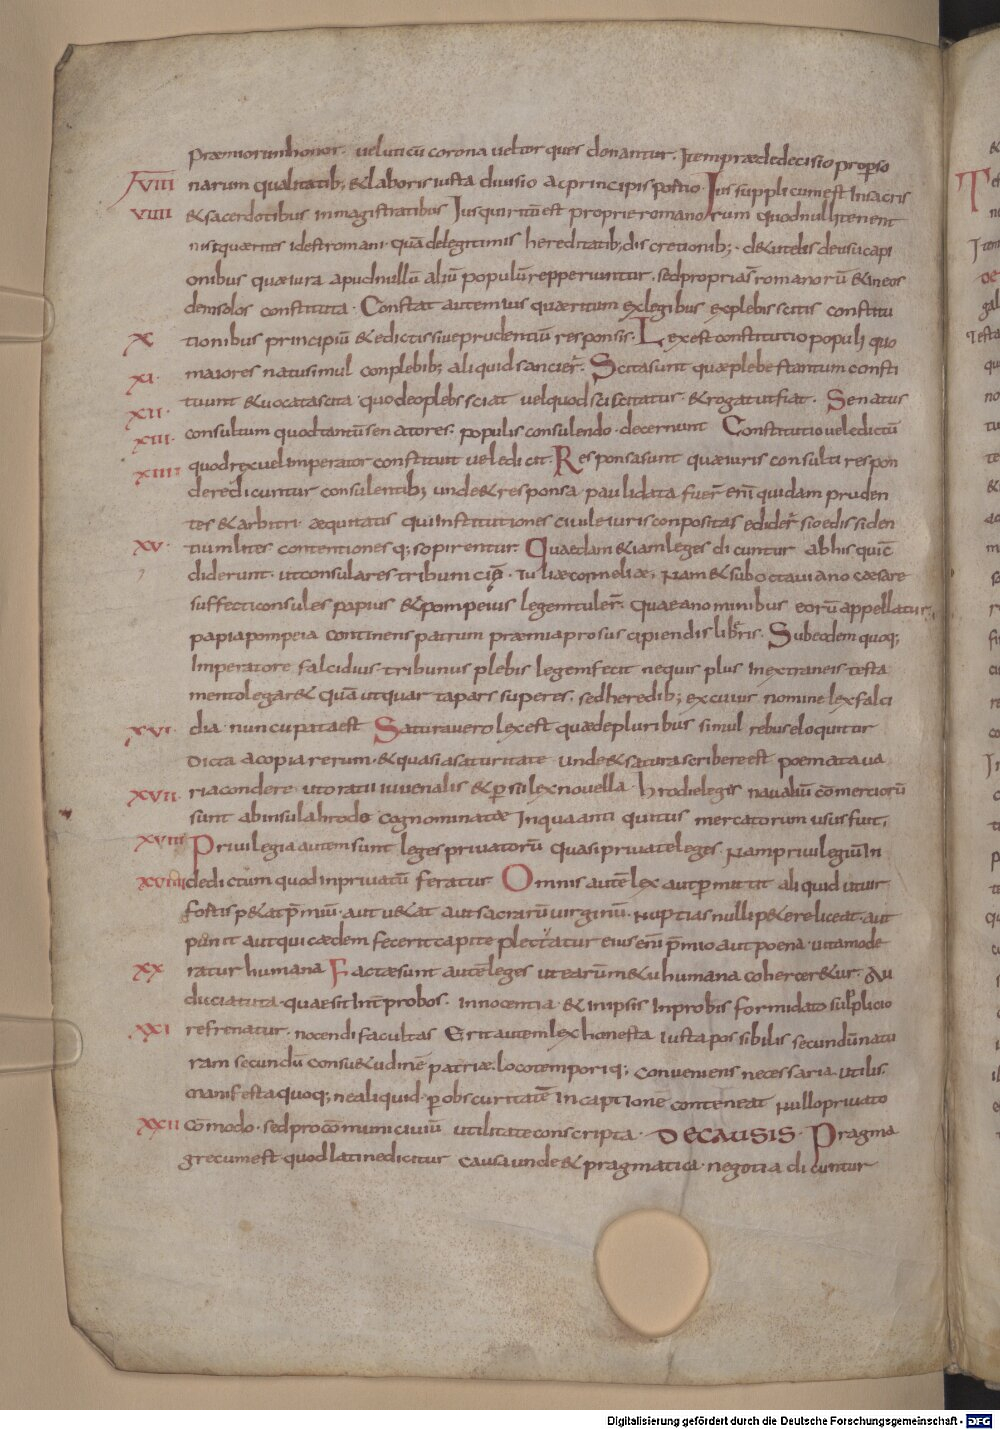 praemiorum honor. veluticū corona veltorques donantur. Item praede decisio proprso
XVIII narum qualitatib; & laboris iusta divisio ac principis portio Ius publicum est In sacris
VIIII & sacerdotibus in magistratibus Ius quiritū est proprie romanorum quod nulli tenent
nisi quaerites id est romani. quā delegitimis hereditatib; dis cretionib; de tutelis de usucapi
onibus quae iura apud nullū aliū populū repperiuntur. sed propria s romanorū & in eos
dem solos constituta. Constat autem ius quaeritum ex legibus ex plebis scitis constitu
X tionibus principiū & edictis siue prudentiū responsis. Lex est constitutio populi quo
XI. maiores natu simul con plebib; aliquid sancier. Scita sunt quae plebes tantum consti
XII. tuunt & vocata scita quod eo plebs sciat vel quod sciscitatur & rogatut fiat. Senatus
XIII. consultum quod tantū senatores. populis consulendo. decernunt Constitutio vel edictū
XIIII quod rex vel imperator constituit vel edicit. Responsa sunt quae iuris consulti respon
dere dicuntur consulentib; unde & responsa pauli data. fuer enī quidam pruden
tes & arbitri. aequitatis qui Institutiones ciuile iuris conpositas edider sioedis siden
XV. tium lites contentionesq; sopirentur. Quaedam & iam leges dicuntur ab his qui cō
diderunt. ut consulares tribuni ciȩ. Iuliae corneliae. Nam & sub octaviano caesare
suffecti consules papius & pompeius legem tuler. quae a nominibus eorū appellatur.
papia pompeia continens patrum praemia pro suscipiendis libris. Sub eodem quoq;
Imperatore falcidius. tribunus plebis legem fecit ne quis plus In extraneis testa
mento legar& quā ut quarta pars super es. sed heredib; ex cuius nomine lex falci
XVI dia nuncupata est Satura vero lex est quae de pluribus simul rebus eloquitur
Dicta a copia rerum. & quasi a saturitate unde & satura scribere est poemata va
XVII. ria condere. ut oratii iuvenalis & persii lex novella hrodie leges navaliū cōmertiorū
sunt ab insula hrodo cognominatae In qua anti quitus mercatorum usus fuit.
XVIII Privilegia autem sunt leges privatorū quasi privatae leges. Nam privilegiū In
XVIIII de dictum quod in privatū feratur. Omnis autē lex aut pmittit aliquid ut vir
fortis p&at pmiū. aut v&at aut sacrarū virginū. nuptias nulli p&ere liceat. aut
punit aut qui caedem fecerit capite plectatur eius enī pmio aut poena vita mode
XX ratur humana Factae sunt autē leges ut earūm&u humana coherceretur. Au
ducia tuta. quae sit Inter probos. Innocentia & in ipsis Inprobis formidato supplicio
XXI refrenatur. nocendi facultas Erit autem lex honesta iusta possibilis secundū natu
ram secundū consu&udinē patriae. loco temporiq; conveniens necessaria utilis.
manifesta quoq; ne aliquid. p obscuritatē In captionē conteneat nullo privato
XXII cōmodo. sed pro cōmuni civiū utilitate conscripta. DE CAUSIS. Pragma
grecum est. quod latine dicitur causa unde & pragmatica. negotia dicuntur
Digitalisierung gefördert durch die Deutsche Forschungsgemeinschaft - DFG